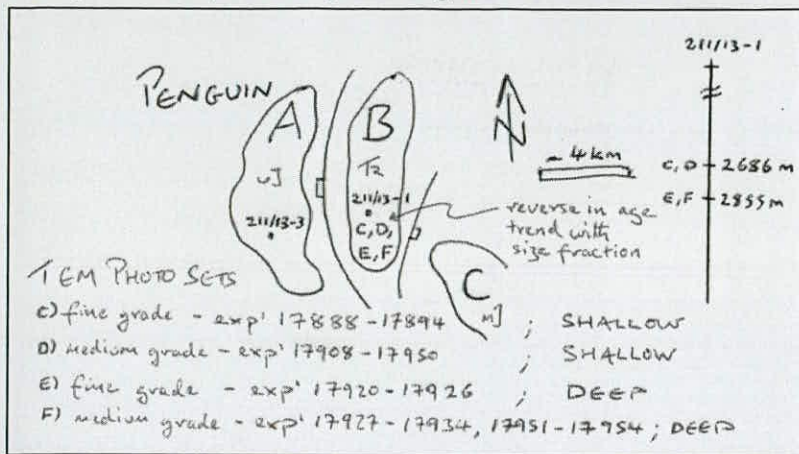 PENGUIN
A
uJ
211/13-3
B
Tr
211/13-1
C, D,
E, F
N
~ 4 km
reverse in age
trend with
size fraction
C
mJ
211/13-1
C, D 2686 m
E, F 2855 m
TEM PHOTO SETS
C) fine grade - exp' 17888-17894 ; SHALLOW
D) medium grade - exp' 17908-17950 ; SHALLOW
E) fine grade - exp' 17920-17926 ; DEEP
F) medium grade - exp' 17927-17934, 17951-17954 ; DEEP